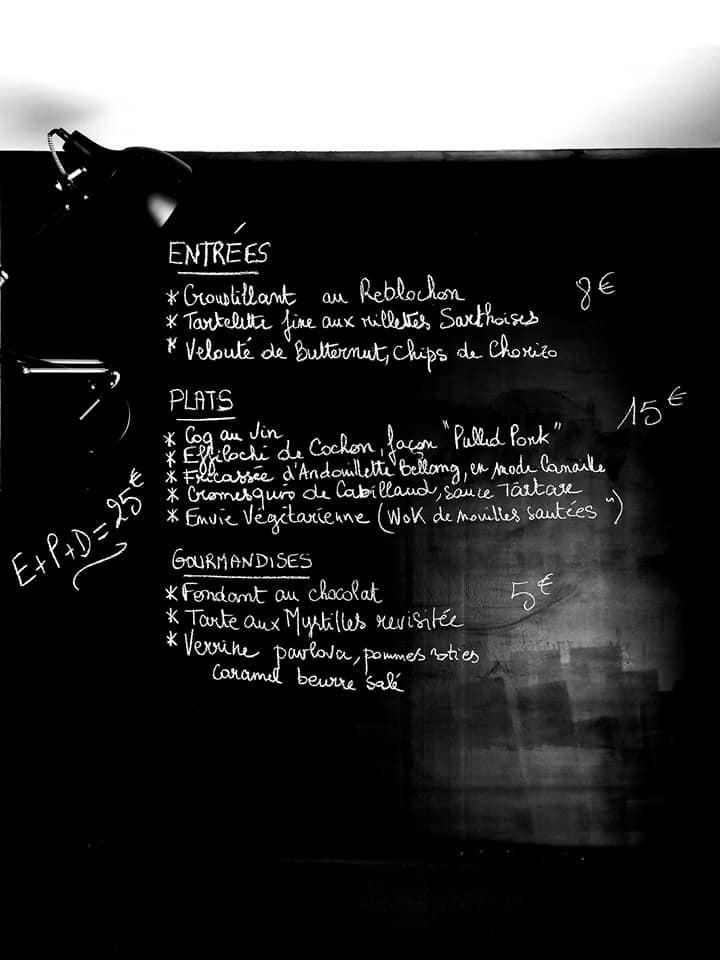 ENTRÉES
* Croustillant au Reblochon 8€
* Tartelette fine aux rillettes Sarthoises
* Velouté de Butternut, Chips de Chorizo
PLATS
15€
* Coq au Vin
* Effiloché de Cochon, façon "Pulled Pork"
* Fricassée d'Andouillette Bellang, en mode Canaille
* Cromesquiro de Cabillaud, sauce Tartare
* Envie Végétarienne (Wok de nouilles sautées ")
E+P+D=25€
GOURMANDISES
* Fondant au chocolat 5€
* Tarte aux Myrtilles revisitée
* Verrine pavlova, pommes roties
Caramel beurre salé